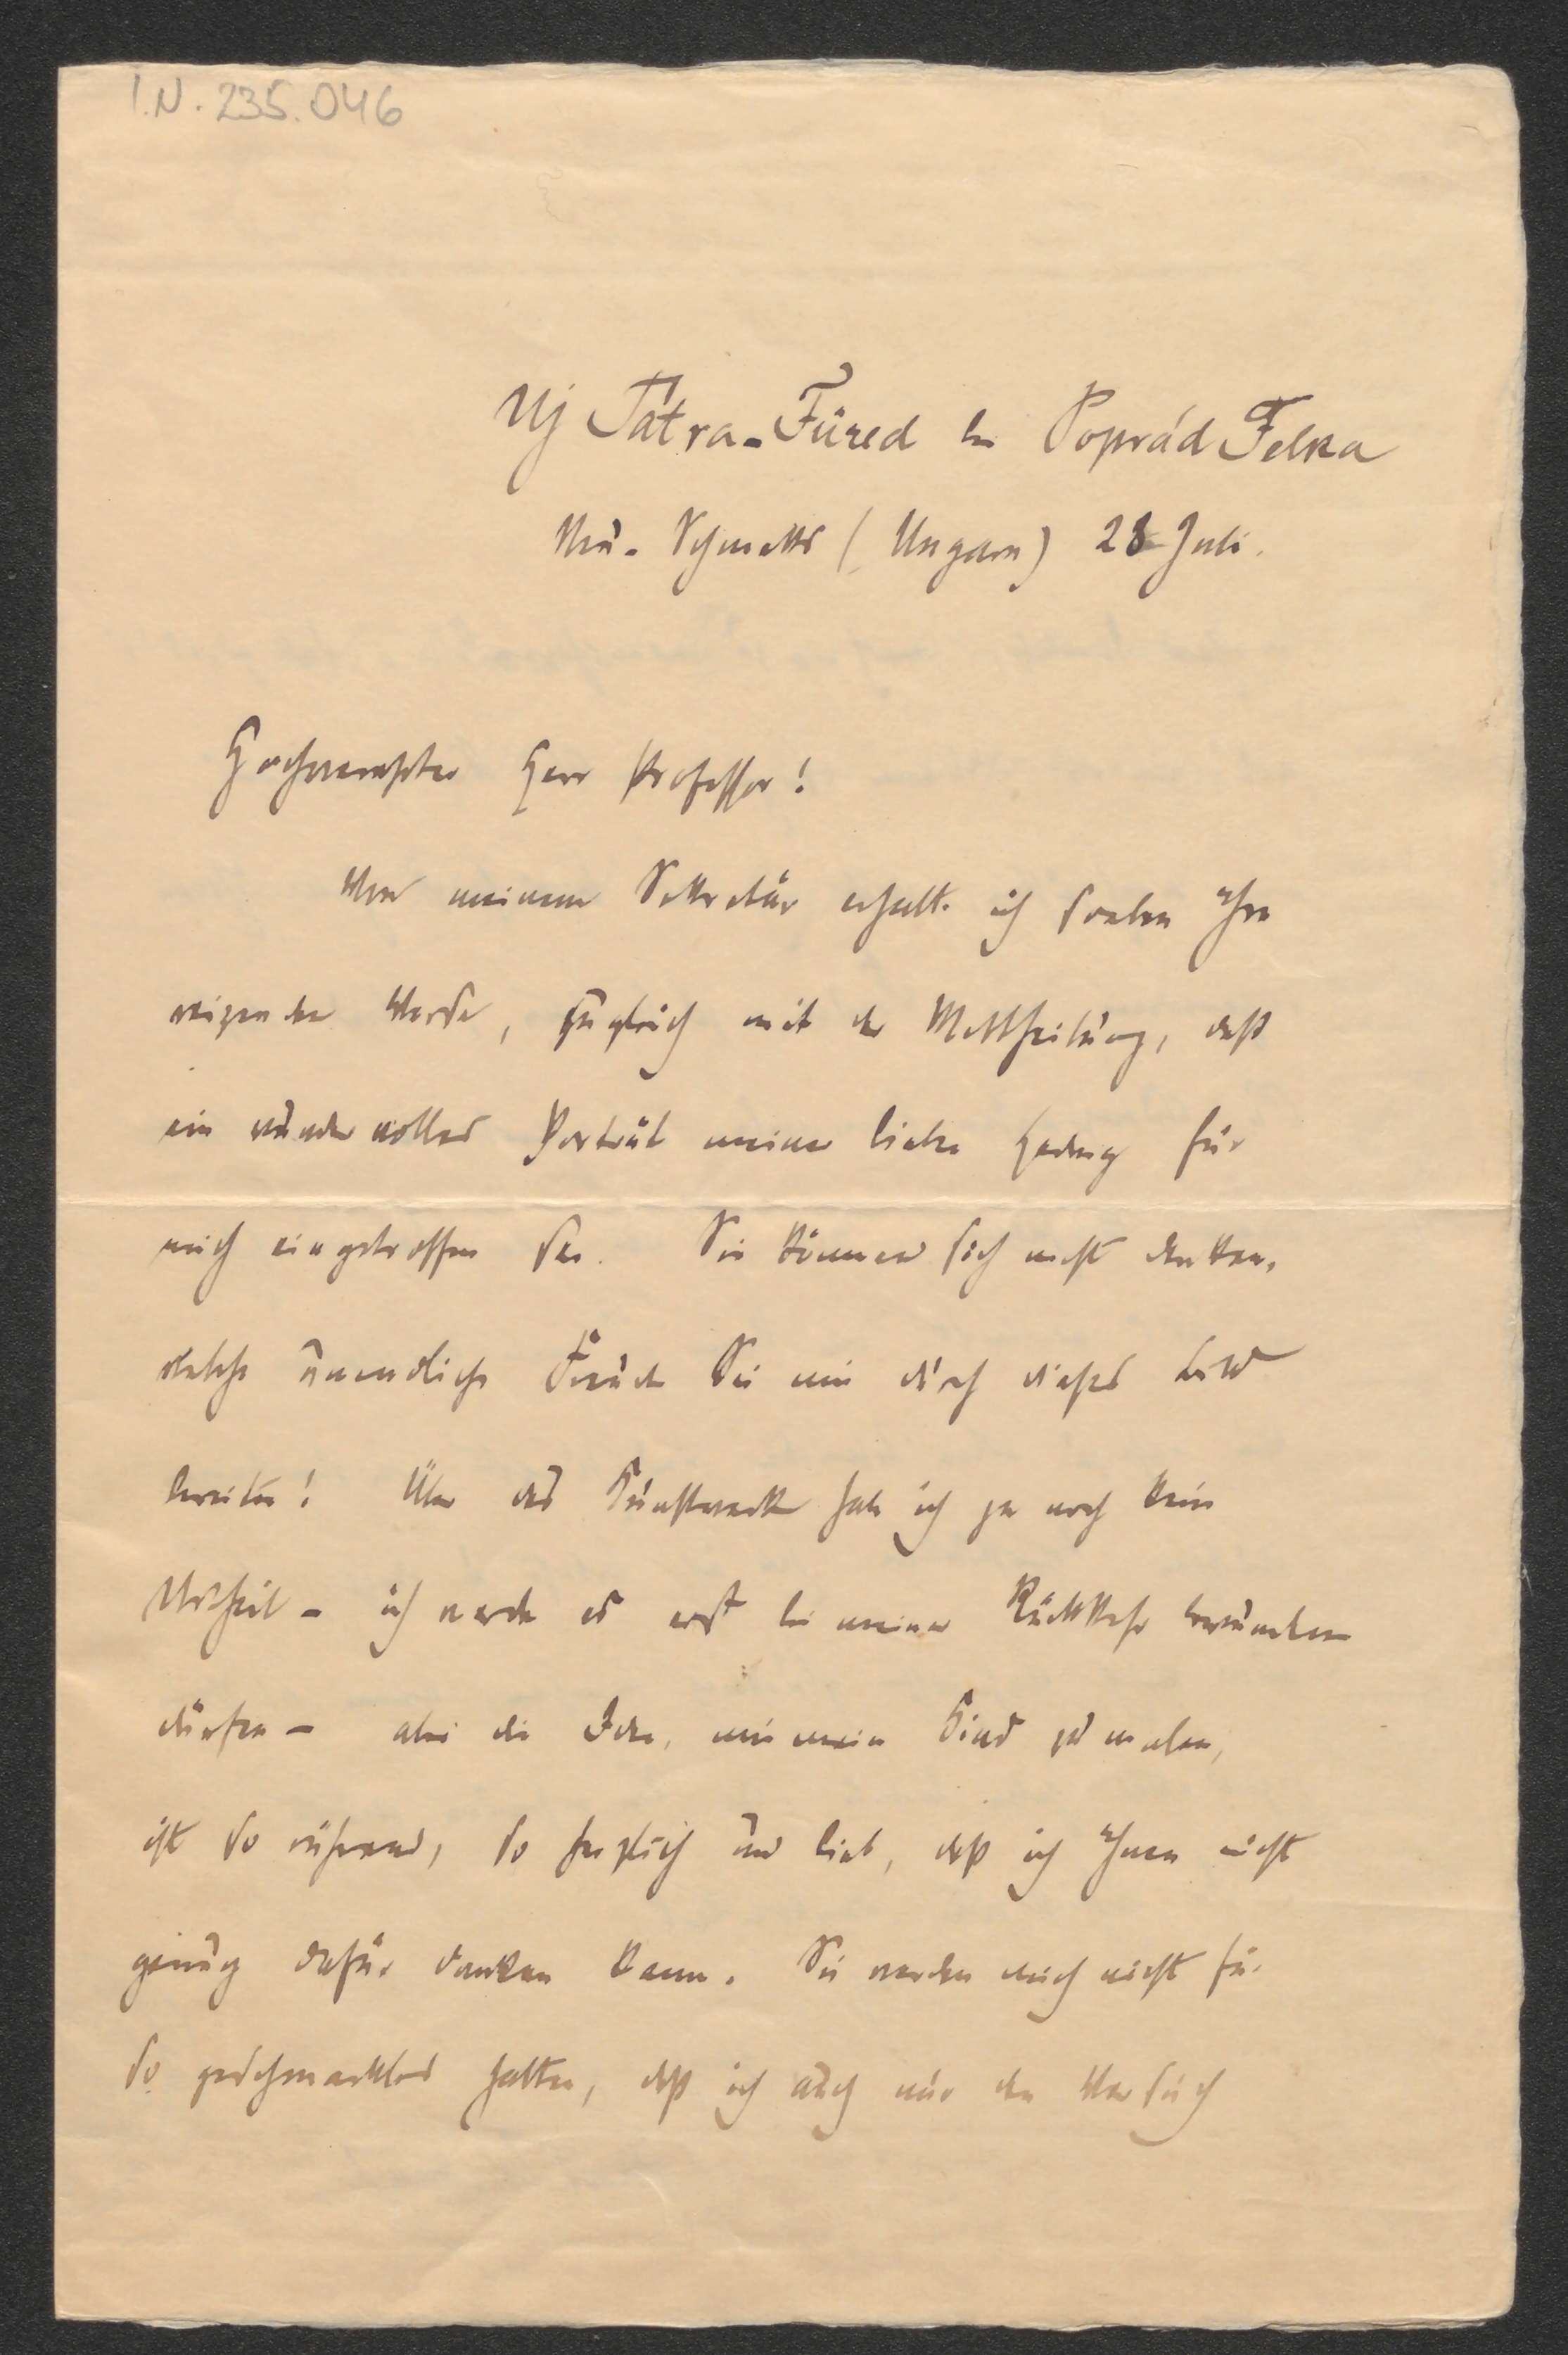 I.N. 235.046
Uj Tátra-Füred bei Poprád Felka
Neu-Schmecks (Ungarn) 28 Juli.
Hochverehrter Herr Professor!
Von meinem Sekretär erhalte ich soeben Ihre
reizenden Verse, zugleich mit der Mittheilung, daß
ein wundervolles Porträt meiner lieben Hedwig für
mich eingetroffen sei. Sie können sich nicht denken,
welche unendliche Freude Sie mir durch dieses Bild
bereiten! Über das Kunstwerk habe ich ja noch kein
Urtheil – ich werde es erst bei meiner Rückkehr bewundern
dürfen – aber die Idee, mir mein Kind zu malen,
ist so rührend, so herzlich und lieb, daß ich Ihnen nicht
genug dafür danken kann. Sie werden mich nicht für
so geschmacklos halten, daß ich auch nur den Versuch